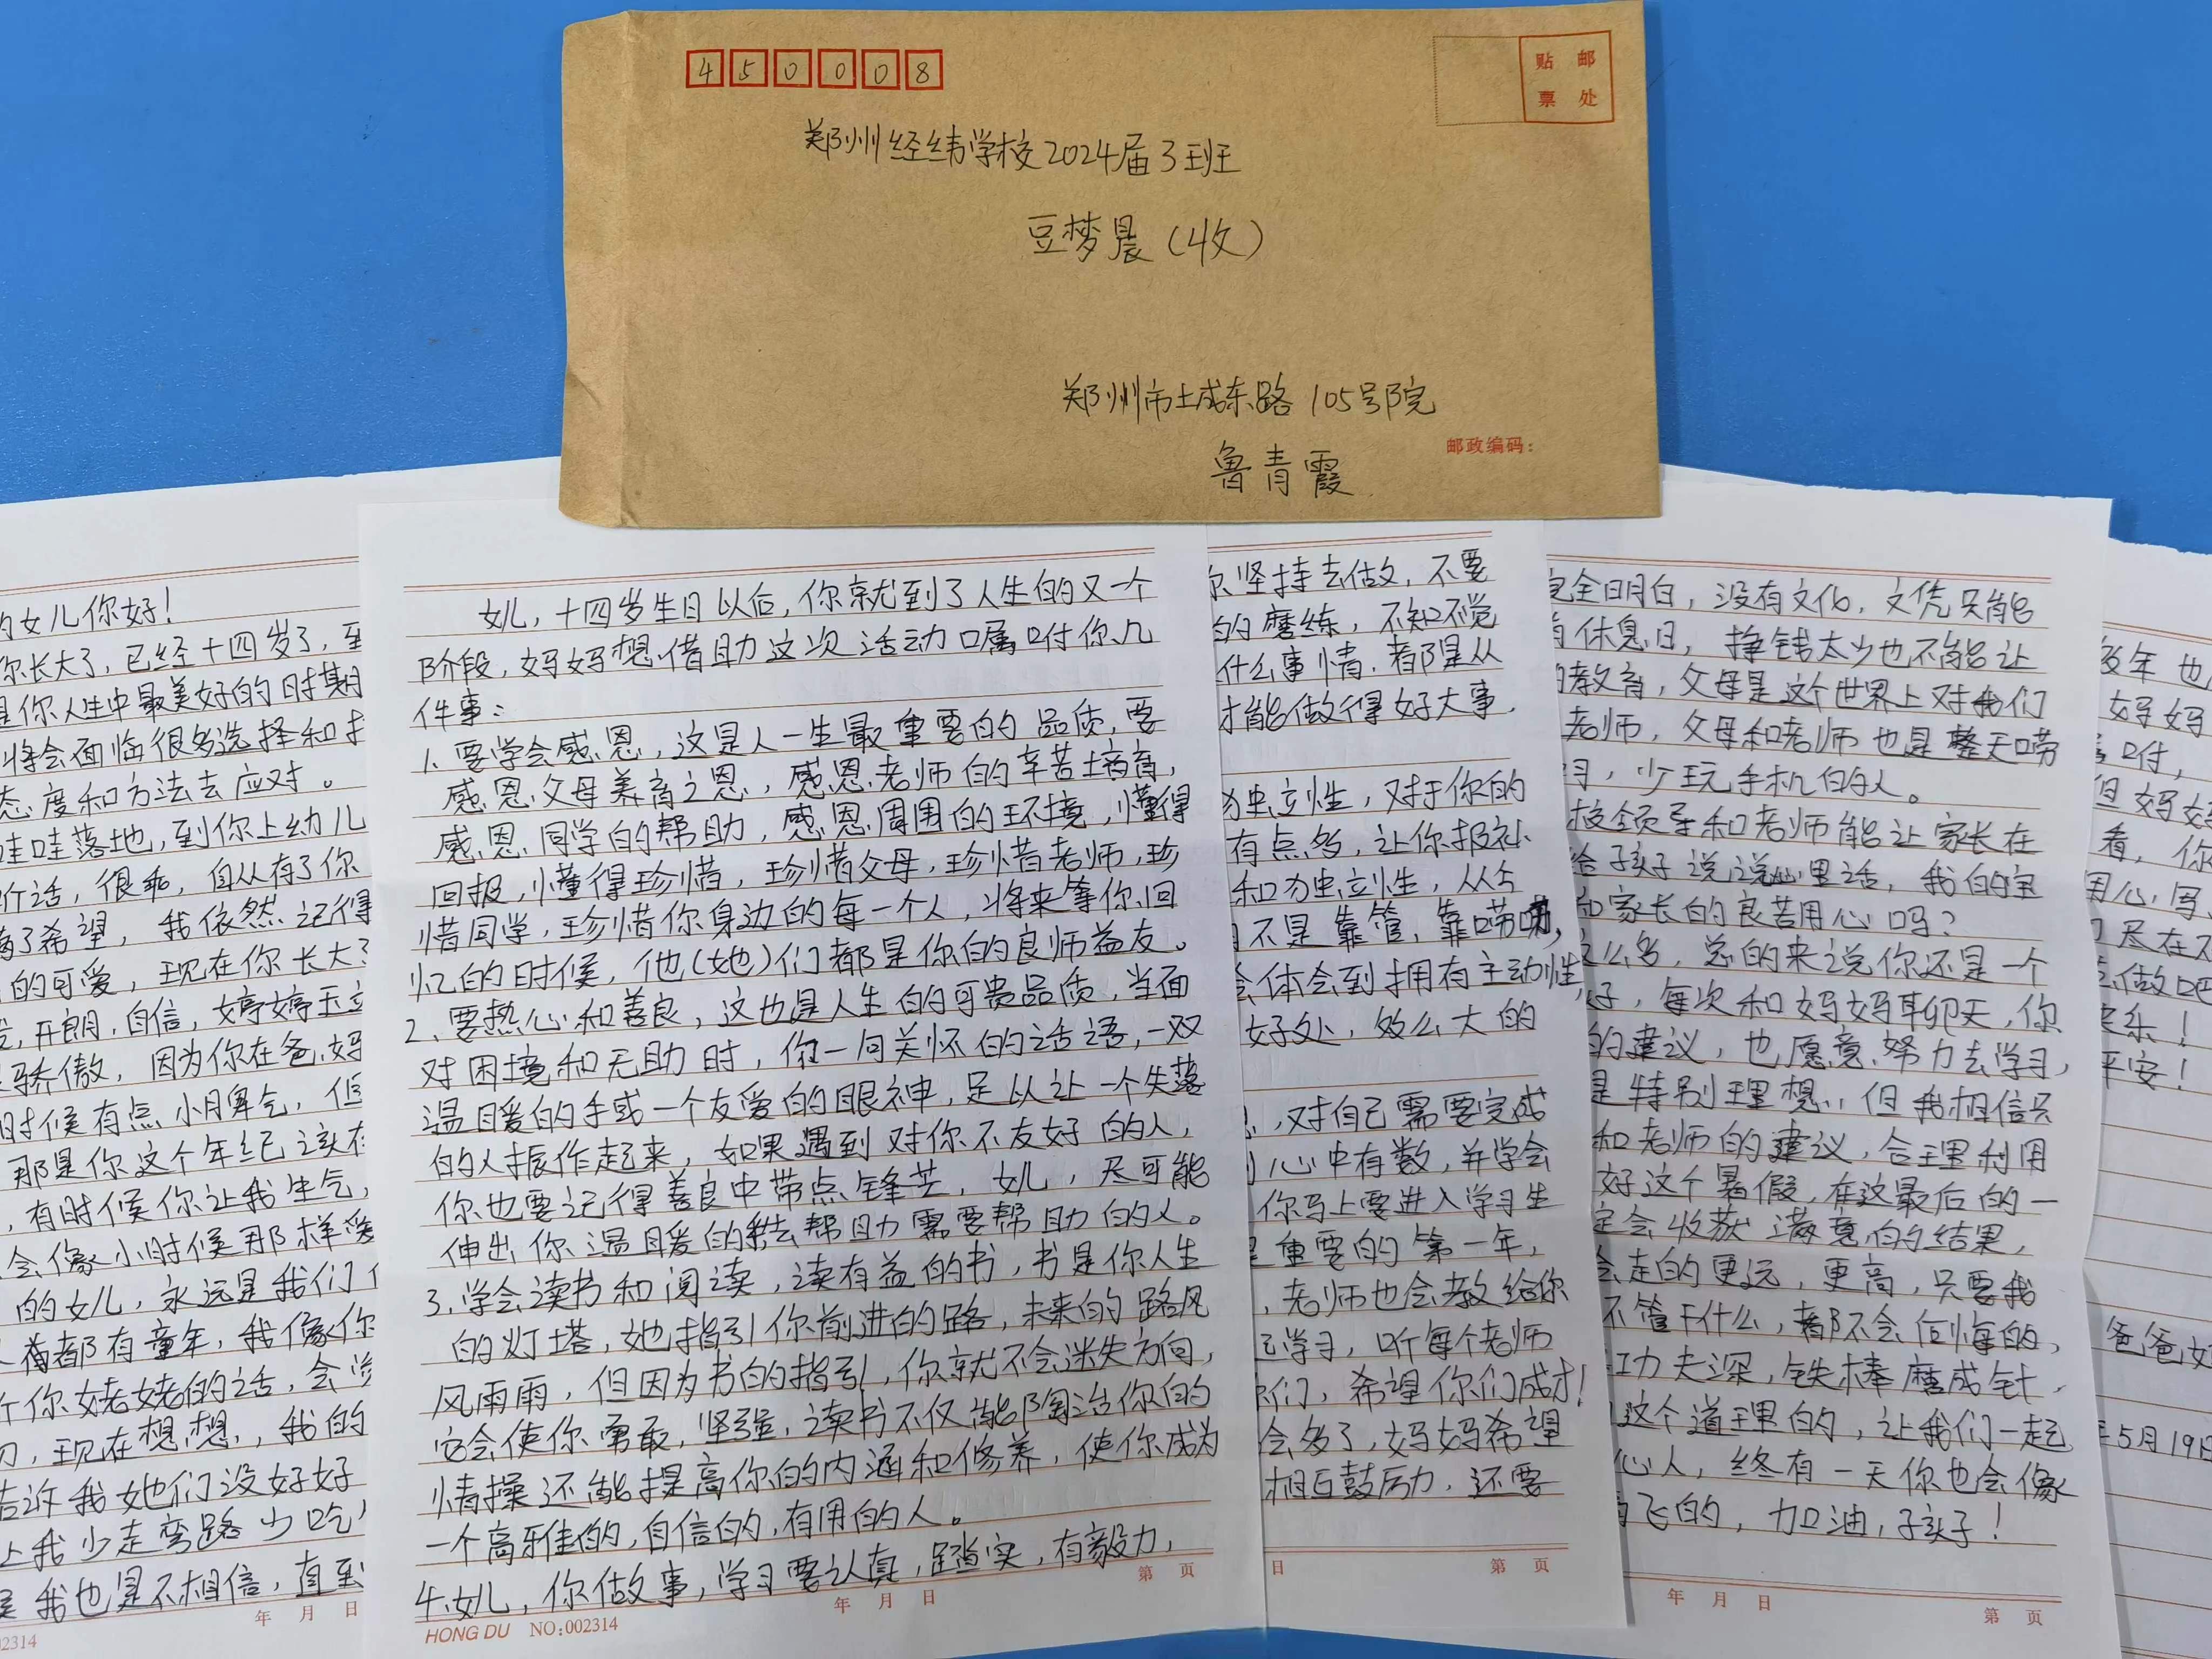 450008
贴 邮
票 处
郑州经纬学校2024届3班
豆梦晨(收)
郑州市土成东路105号院
邮政编码:
鲁青霞
的女儿你好!
你长大了,已经十四岁了,至
是你人生中最美好的时期
将会面临很多选择和
态度和方法去应对。
哇哇落地,到你上幼儿
听话,很乖,自从有了你
满了希望,我依然记得
的可爱,现在你长大了
开朗,自信,婷婷玉立
骄傲,因为你在爸妈
时候有点小脾气,但
那是你这个年纪该有
,有时候你让我生气,
会像小时候那样爱
的女儿,永远是我们
人每都有童年,我像你
听你姥姥的话,会觉
,现在想想,我的
告诉我她们没好好
让我少走弯路少吃
我也是不相信,直到
年 月 日
02314
女儿,十四岁生日以后,你就到了人生的又一个
阶段,妈妈想借助这次活动嘱咐你几
件事:
1、要学会感恩,这是人一生最重要的品质,要
感恩父母养育之恩,感恩老师的辛苦培育,
感恩同学的帮助,感恩周围的环境,懂得
回报,懂得珍惜,珍惜父母,珍惜老师,珍
惜同学,珍惜你身边的每一个人,将来等你回
忆的时候,他(她)们都是你的良师益友。
2、要热心和善良,这也是人生的可贵品质,当面
对困境和无助时,你一句关怀的话语,一双
温暖的手或一个友爱的眼神,足以让一个失落
的人振作起来,如果遇到对你不友好的人,
你也要记得善良中带点锋芒,女儿,尽可能
伸出你温暖的手去帮助需要帮助的人。
3、学会读书和阅读,读有益的书,书是你人生
的灯塔,她指引你前进的路,未来的路风
风雨雨,但因为书的指引,你就不会迷失方向,
它会使你勇敢,坚强,读书不仅能陶冶你的
情操还能提高你的内涵和修养,使你成为
一个高雅的,自信的,有用的人。
4、女儿,你做事,学习要认真,踏实,有毅力,
第 页
年 月 日
HONG DU NO:002314
你坚持去做,不要
的磨练,不知不觉
什么事情,都是从
才能做得好大事,
独立性,对于你的
有点多,让你报补
和独立性,从今
不是靠管,靠唠叨,
会体会到拥有主动性,
好处,多么大的
,对自己需要完成
心中有数,并学会
你马上要进入学习生
重要的第一年,
,老师也会教给你
学习,听每个老师
你们,希望你们成才!
会多了,妈妈希望
相互鼓励,还要
日
第 页
完全明白,没有文化,文凭只能
休息日,挣钱太少也不能让
的教育,父母是这个世界上对我们
老师,父母和老师也是整天唠
习,少玩手机的人。
校领导和老师能让家长在
给孩子说说心里话,我的宝
和家长的良苦用心吗?
这么多,总的来说你还是一个
好,每次和妈妈聊天,你
的建议,也愿意努力去学习,
是特别理想,但我相信只
和老师的建议,合理利用
好这个暑假,在这最后的一
定会收获满意的结果,
会走的更远,更高,只要我
不管干什么,都不会后悔的,
功夫深,铁棒磨成针,
这个道理的,让我们一起
心人,终有一天你也会像
飞的,加油,孩子!
年 月 日
第 页
多年也
妈妈
咐,
但妈妈
看,你
用心,写
尽在不
做吧
乐!
平安!
爸爸妈
年5月19日